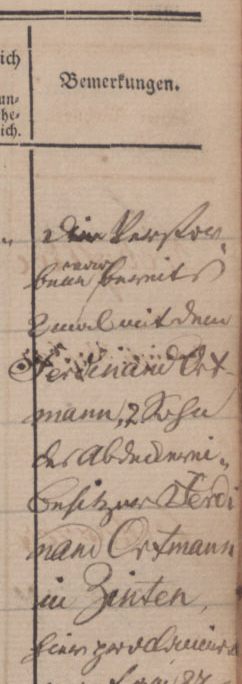 ich
un-
he-
ich.
Bemerkungen.
Die Verstor„
bene war bereits
2 mal mit dem
Ferdinand Ort-
mann, 2 Sohn
des Abdeckerei„
besitzer Ferdi
nand Ortmann
in Zinten,
hier proclamirt